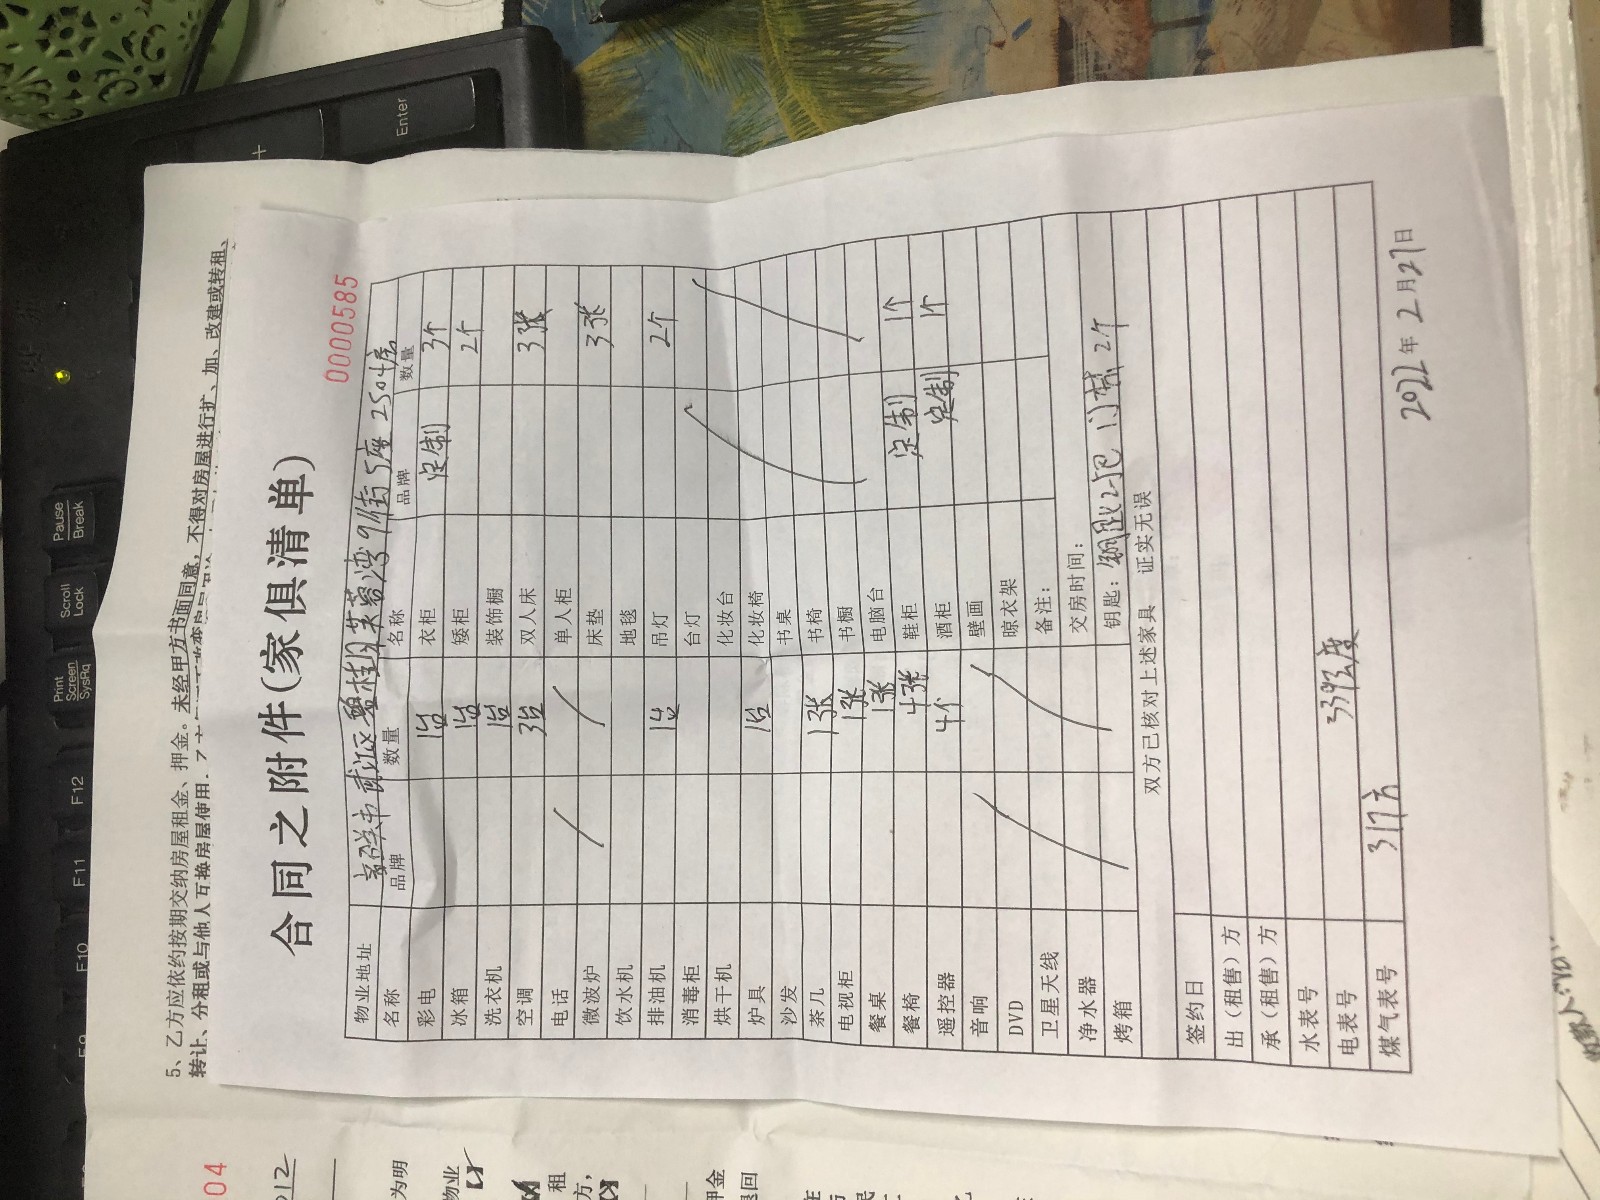 5、乙方应依约按期交纳房屋租金、押金。未经甲方书面同意，不得对房屋进行扩、加、改建或转租、
转让、分租或与他人互换房屋使用．
0000585
合同之附件(家俱清单)
物业地址 碧桂园 湾9街5座2504房
名称 品牌 数量 名称 品牌 数量
彩电 1台 衣柜 定制 3个
冰箱 1台 矮柜 2个
洗衣机 1台 装饰橱
空调 3台 双人床 3张
电话 单人柜
微波炉 床垫 3张
饮水机 地毯
排油机 1台 吊灯 2个
消毒柜 台灯
烘干机 化妆台
炉具 1台 化妆椅
沙发 书桌
茶几 1张 书椅
电视柜 1张 书橱
餐桌 1张 电脑台
餐椅 4张 鞋柜 定制 1个
遥控器 4个 酒柜 定制 1个
音响 壁画
DVD 晾衣架
卫星天线 备注：
净水器 交房时间：
烤箱 钥匙： 2个
双方已核对上述家具 证实无误
签约日
出（租售）方
承（租售）方
水表号
电表号 3393度
煤气表号 317方
2022年2月27日
04
012
为明
物业
租
方，
押金
退回
Enter
Pause
Break
Scroll
Lock
Print
Screen
SysRq
F12
F11
F10
F9